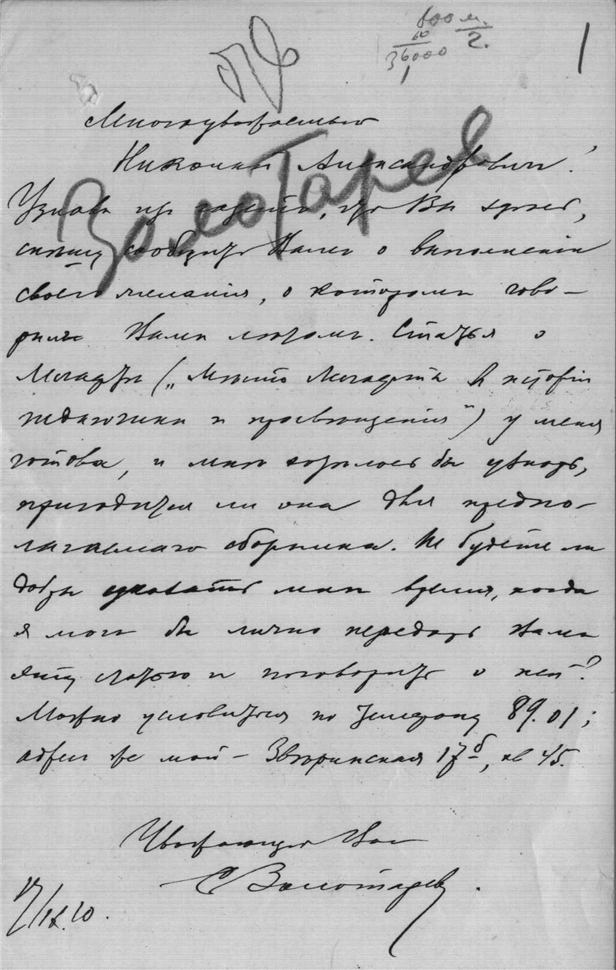 600 м.
60 2.
36000
1
1
Многоуважаемый
Николай Александрович!
Золотарев
Узнав из газет, что Вы здесь,
спешу сообщить Вам о выполнении
своего желания, о котором гово-
рил с Вами летом. Статья о
("Место в истории
педагогики и просвещения") у меня
готова, и мне хотелось бы узнать,
пригодится ли она для предпо-
лагаемого сборника. Не будете ли
добры указать мне время, когда
я мог бы лично передать Вам
эту статью и поговорить о ней?
Можно условиться по телефону 89.01;
адрес же мой - Зверинская 17б, кв 45.
Уважающий Вас
С Золотарев.
10.